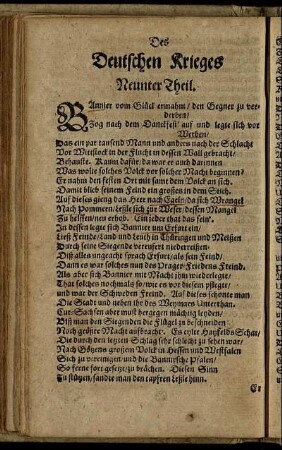 Des
Deutschen Krieges
Neunter Theil.
BAnnier vom Glück ermahnt / den Gegner zu ver-
derben /
Zog nach dem Danckfest auf und legte sich vor
Werben /
Das ein par tausend Mann und anders nach der Schlacht
Vor Witstock in der Flucht in dessen Wall gebracht /
Behauste. Kaum dafür / da war er auch darinnen
Was wolte solches Volck vor solcher Macht beginnen?
Er nahm den festen Ort mit samt dem Volck an sich.
Damit blieb seinem Feind ein grosser in dem Stich.
Auf dieses gieng das Heer nach Egeln / da sich Wrangel
Nach Pommern / drßlie sich zur Weser / dessen Mangel
Zu helffen / neu erhob. Ein jeder that das sein'.
In dessen legte sich Bannier um Erfurt ein /
Ließ Feinde / Land und Leuth in Thüringen und Meißen
Durch seine Siegende verwüsten niederreißen.
Diß alles ungeacht sprach Erfurt / als sein Feind /
Dann es war solches nun des Prager-Friedens Freind.
Als aber sich Bannier mit Macht ihm wiederlegte
That solches nochmals so / wie es vor diesem pflegte /
und war der Schweden Freind. Auf dieses schonte man
Die Stadt und neben ihr des Weymars Unterthan.
Cur-Sachsen aber must hergegen mächtig leyden /
Biß man den Siegenden die Flügel zu beschneiden
Noch grösser Macht aufbracht. Es eylte Hatzfelds Schar /
Die durch den letzten Schlag sehr schlecht zu sehen war /
Nach Götzens grossem Volck in Hessen und Westfalen
Sich zu vereinigen / und die Bannierschen Pfalen /
So ferne fort gesetzt / zu brächen. Diesen Sinn
Zu stützen / sandte man den tapfren Leßle hinn.
Er